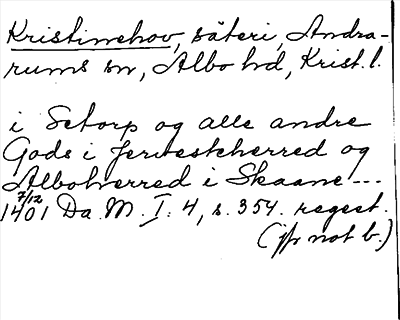 Kristinehov, säteri, Andra-
rums sn, Albo hd, Krist. l.
i Setorp og alle andre
Gods i Jerrestcherred og
Albotverred i Skaane ---
7/12
1401 Da. M. I: 4, s. 354. regest.
(jfr not b.)